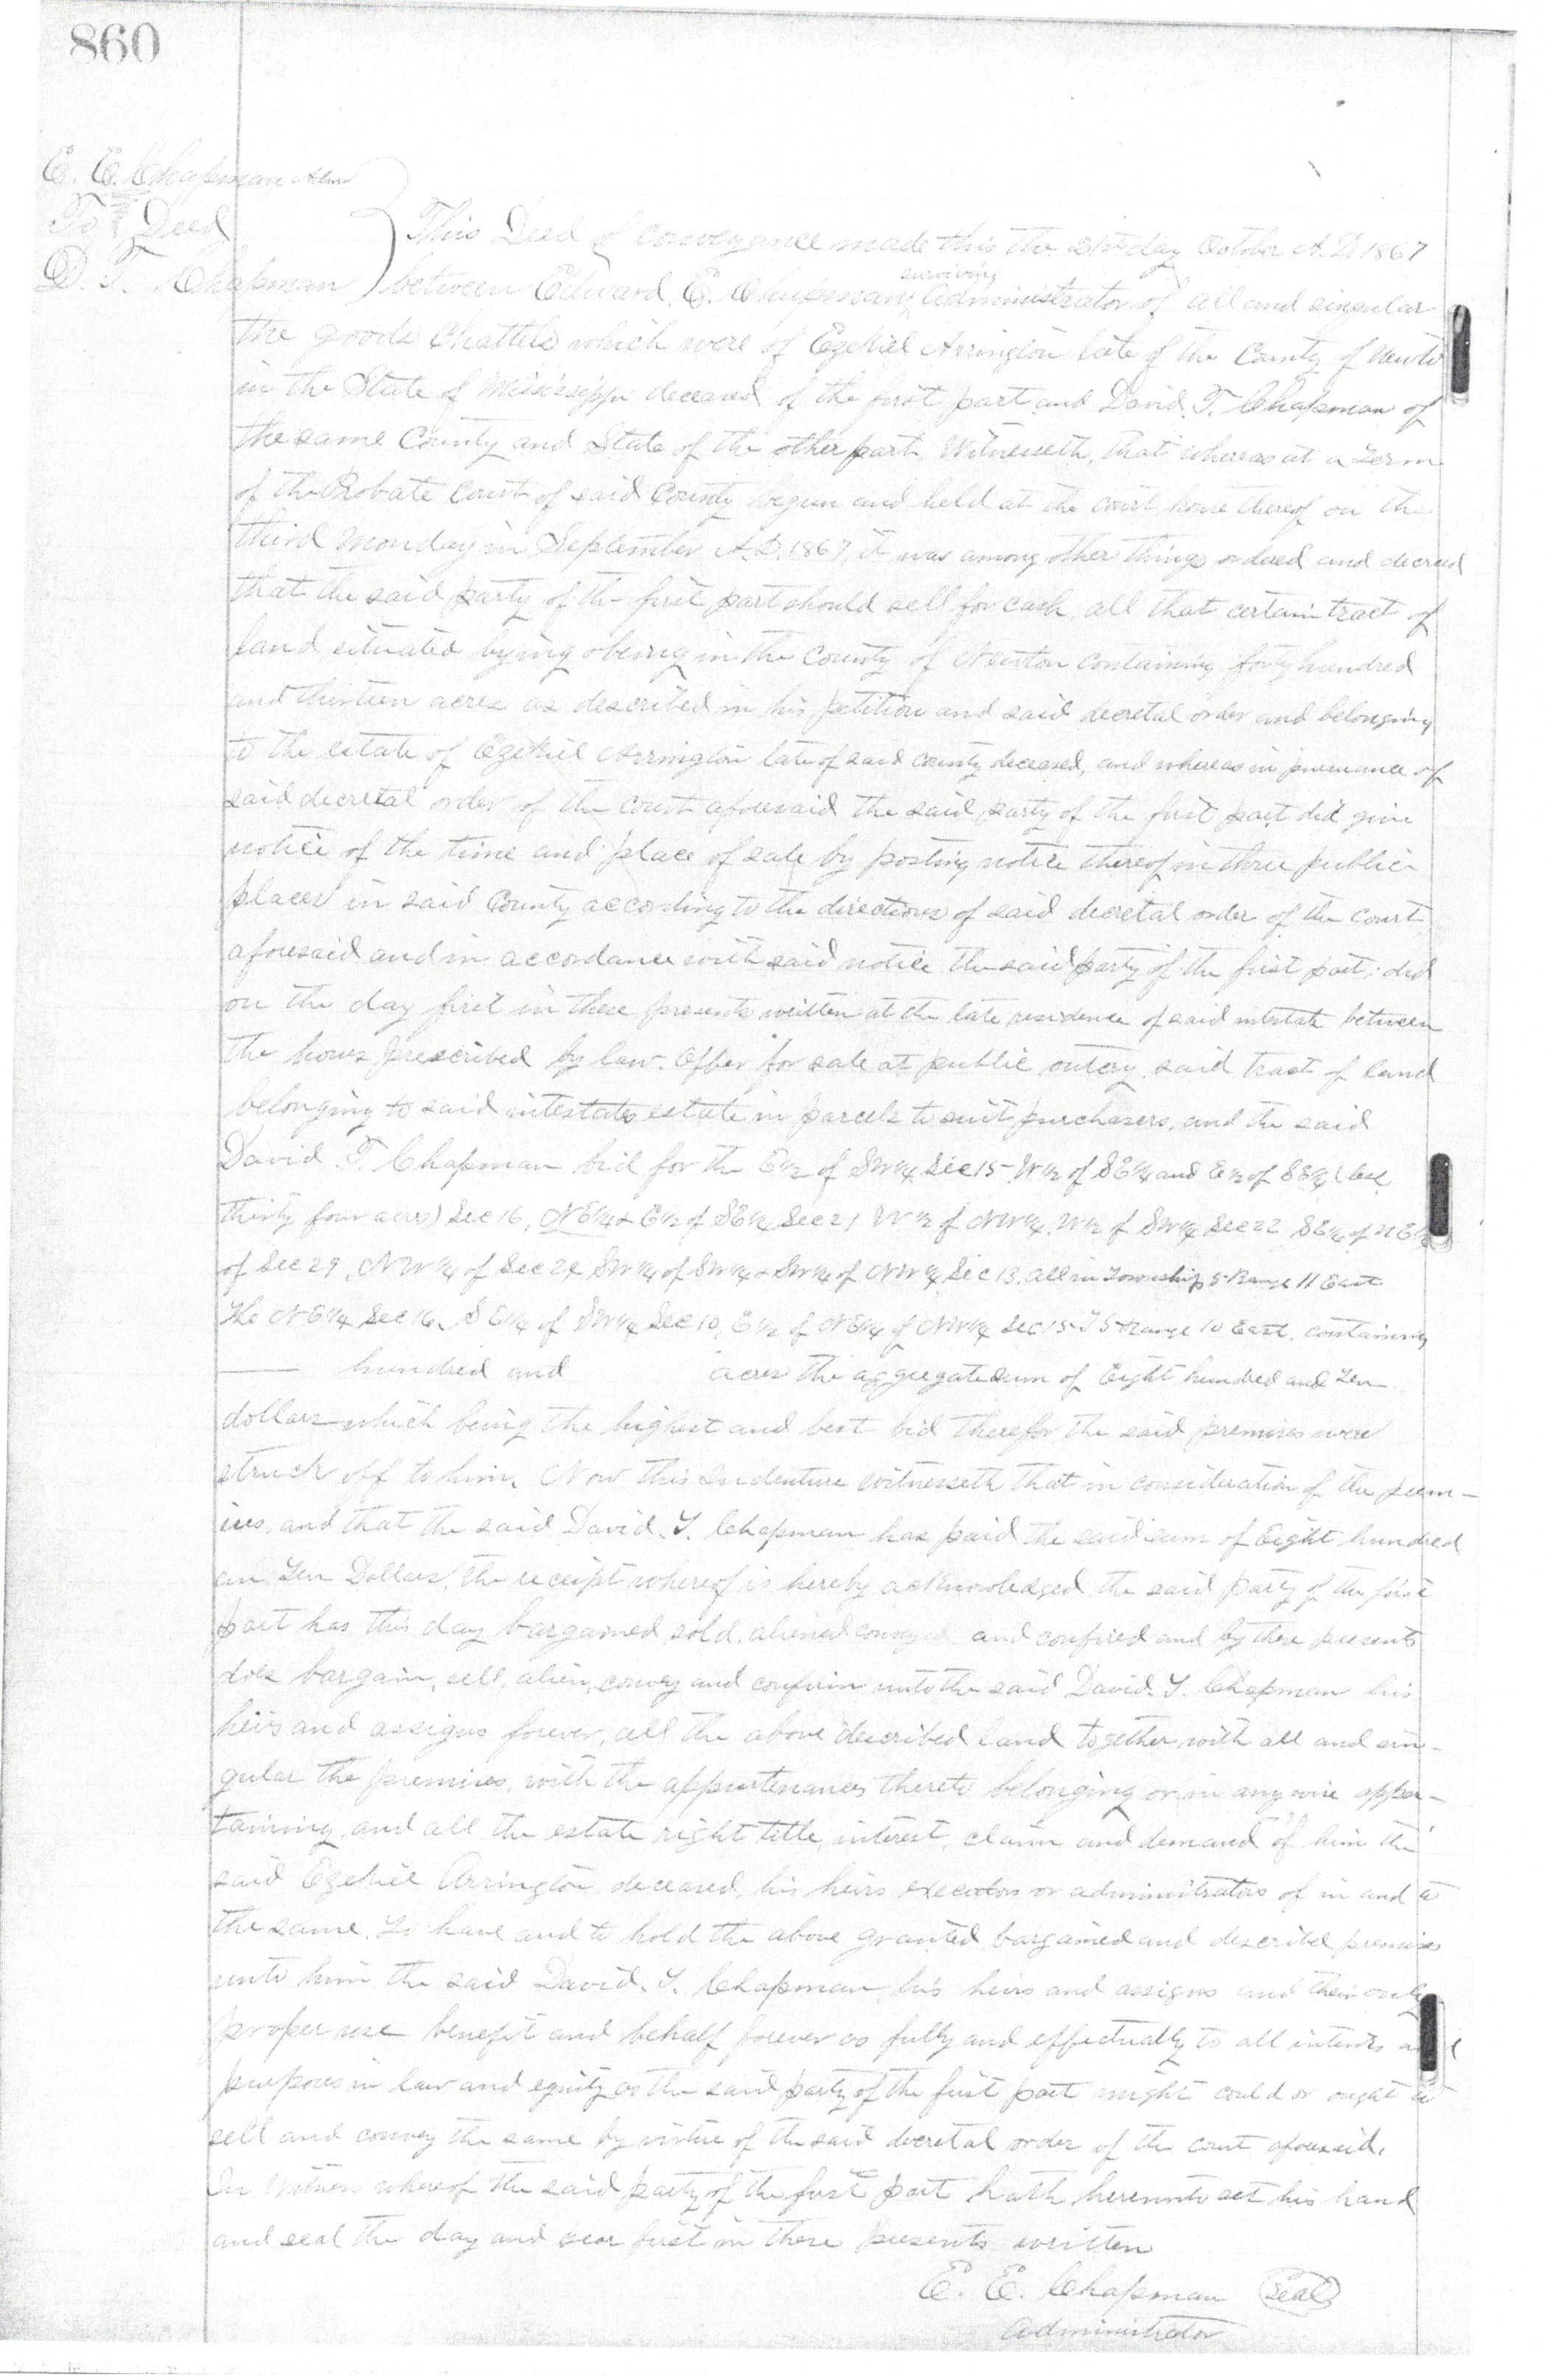 860
E. E. Chapman Adm
To } Deed
D. T. Chapman
This Deed of conveyance made this the 21st day October A.D. 1867
between Edward. E. Chapman surviving Administrator of all and singular
the goods Chattels which were of Ezekiel Arrington late of the County of Newto
in the State of Mississippi deceased of the first part and David. T. Chapman of
the same County and State of the other part. Witnesseth, that whereas at a Term
of the Probate Court of said County begun and held at the court house thereof on the
third Monday in September A.D. 1867, it was among other things ordered and decreed
that the said party of the first part should sell for cash, all that certain tract of
land situated lying & being in the County of Newton containing forty hundred
and thirteen acres as described in his petition and said decretal order and belonging
to the estate of Ezekiel Arrington late of said county deceased, and whereas in pursuance of
said decretal order of the court aforesaid the said party of the first part did give
notice of the time and place of sale by posting notice thereof in three public
places in said County according to the directions of said decretal order of the court
aforesaid and in accordance with said notice the said party of the first part, did
on the day first in these presents written at the late residence of said intestate between
the hours prescribed by law. Offer for sale at public outcry said tract of land
belonging to said intestates estate in parcels to suit purchasers, and the said
David. T. Chapman bid for the E½ of SW¼ Sec 15 W½ of SE¼ and E½ of SE¼ (less
thirty four acres) Sec 16, NE¼ & E½ of SE¼ Sec 21 W½ of NW¼, W½ of SW¼ Sec 22 SE¼ of NE¼
of Sec 29, NW¼ of Sec 28 SW¼ of SW¼ & SW¼ of NW¼ Sec 13. all in Township 5 Range 11 East
The NE¼ Sec 16, SE¼ of SW¼ Sec 10, E½ of NE¼ of NW¼ Sec 15 T 5 Range 10 East, containing
—— hundred and acres the aggregate sum of Eight hundred and Ten
dollars which being the highest and best bid therefor the said premises were
struck off to him. Now this indenture witnesseth that in consideration of the prem-
ises, and that the said David. T. Chapman has paid the said sum of Eight hundred
an Ten Dollars, the receipt whereof is hereby acknowledged the said party of the first
part has this day bargained sold. aliened conveyed and confired and by these presents
does bargain, sell, alien, convey and confirm unto the said David. T. Chapman his
heirs and assigns forever, all the above described land together with all and sin-
gular the premises, with the appurtenances thereto belonging or in any wise apper-
taining, and all the estate right title, interest, claim and demand of him the
said Ezekiel Arrington deceased, his heirs executors or administrators of in and to
the same. To have and to hold the above granted bargained and described premises
unto him the said David. T. Chapman his heirs and assigns and their only
proper use benefit and behalf forever as fully and effectually to all intents and
purposes in law and equity as the said party of the first part might could or ought to
sell and convey the same by virtue of the said decretal order of the court aforesaid.
In Witness whereof the said party of the first part hath hereunto set his hand
and seal the day and year first in these presents written
E. E. Chapman (Seal)
Administrator